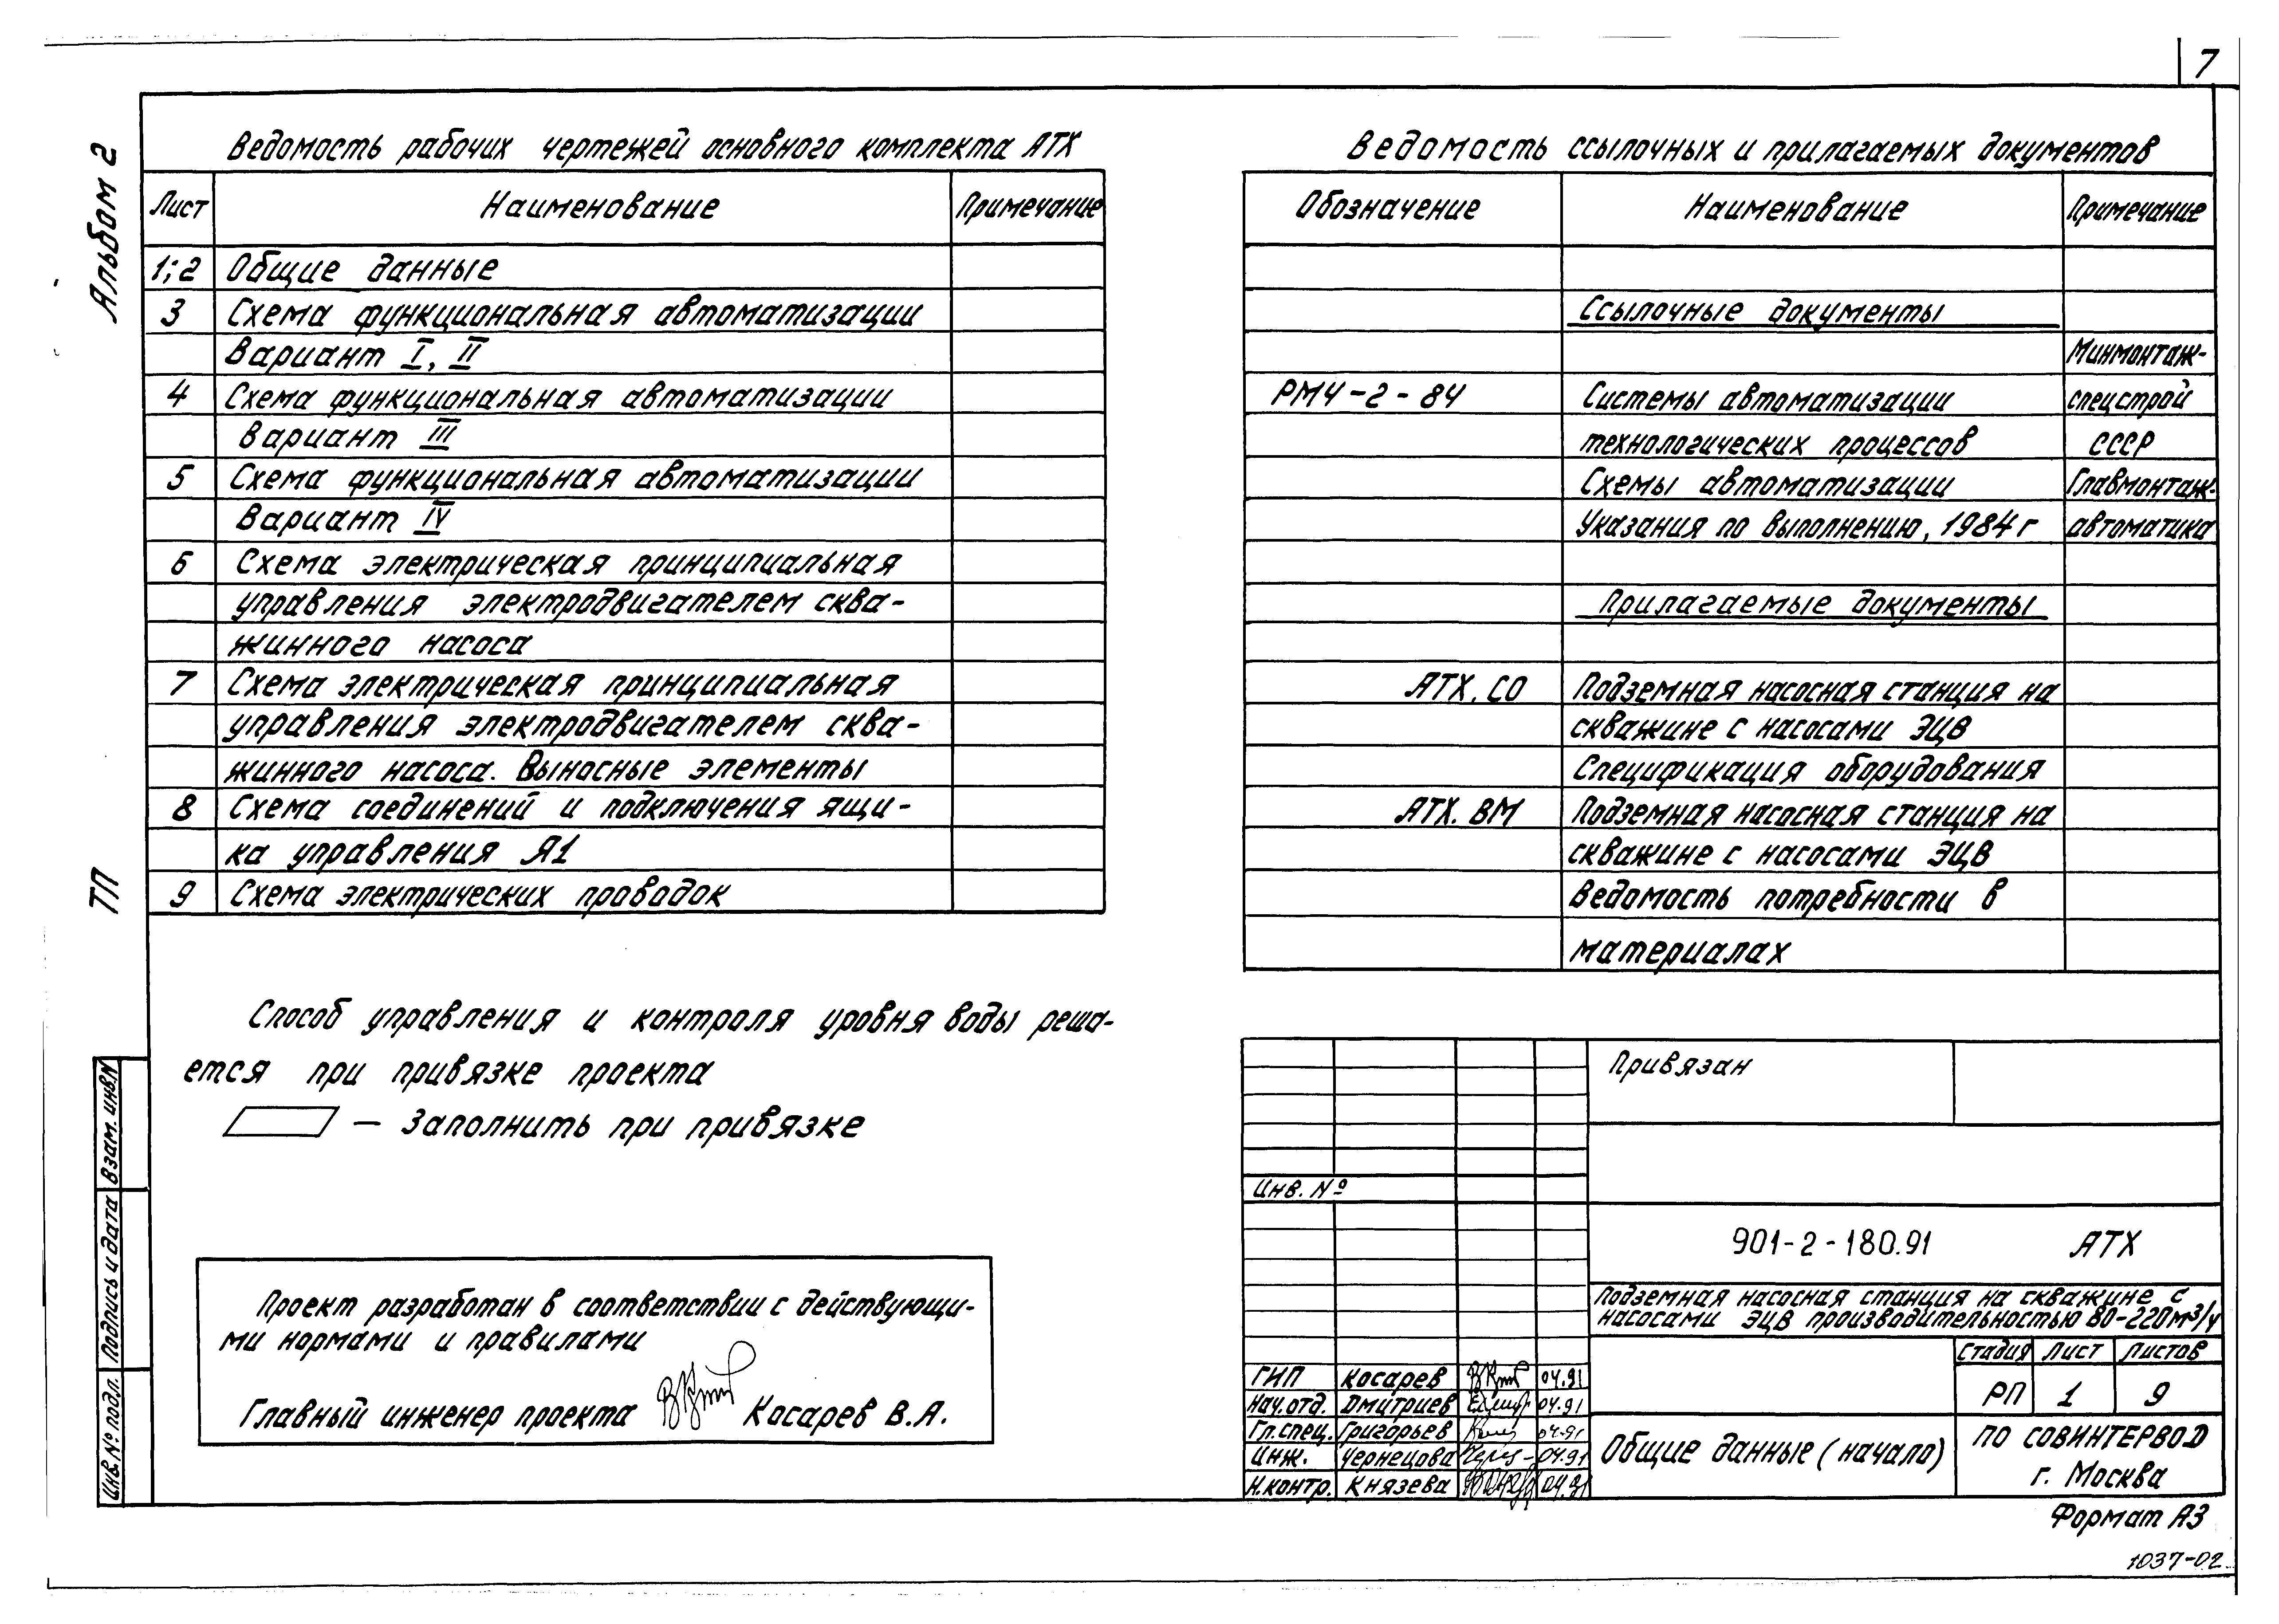 7
Альбом 2
ТП
Ведомость рабочих чертежей основного комплекта АТХ
Лист Наименование Примечание
1;2 Общие данные
3 Схема функциональная автоматизации
Вариант I, II
4 Схема функциональная автоматизации
Вариант III
5 Схема функциональная автоматизации
Вариант IV
6 Схема электрическая принципиальная
управления электродвигателем сква-
жинного насоса
7 Схема электрическая принципиальная
управления электродвигателем сква-
жинного насоса. Выносные элементы
8 Схема соединений и подключения ящи-
ка управления Я1
9 Схема электрических проводок
Ведомость ссылочных и прилагаемых документов
Обозначение Наименование Примечание
Ссылочные документы
Минмонтаж-
РМ4-2-84 Системы автоматизации спецстрой
технологических процессов СССР
Схемы автоматизации Главмонтаж-
Указания по выполнению, 1984г автоматика
Прилагаемые документы
АТХ. СО Подземная насосная станция на
скважине с насосами ЭЦВ
Спецификация оборудования
АТХ. ВМ Подземная насосная станция на
скважине с насосами ЭЦВ
Ведомость потребности в
материалах
Способ управления и контроля уровня воды реша-
ется при привязке проекта
— Заполнить при привязке
Проект разработан в соответствии с действующи-
ми нормами и правилами
Главный инженер проекта Косарев В.А.
Взам. инв.N
Подпись и дата
Инв. № подл.
Привязан
Инв. №
901-2-180.91 АТХ
Подземная насосная станция на скважине с
насосами ЭЦВ производительностью 80-220м3/ч
Стадия Лист Листов
РП 1 9
ГИП Косарев 04.91
Нач.отд. Дмитриев 04.91
Гл.спец. Григорьев 04.91
Инж. Чернецова 04.91
Н.контр. Князева 04.91
Общие данные (начало)
ПО СОВИНТЕРВОД
г. Москва
Формат А3
1037-02